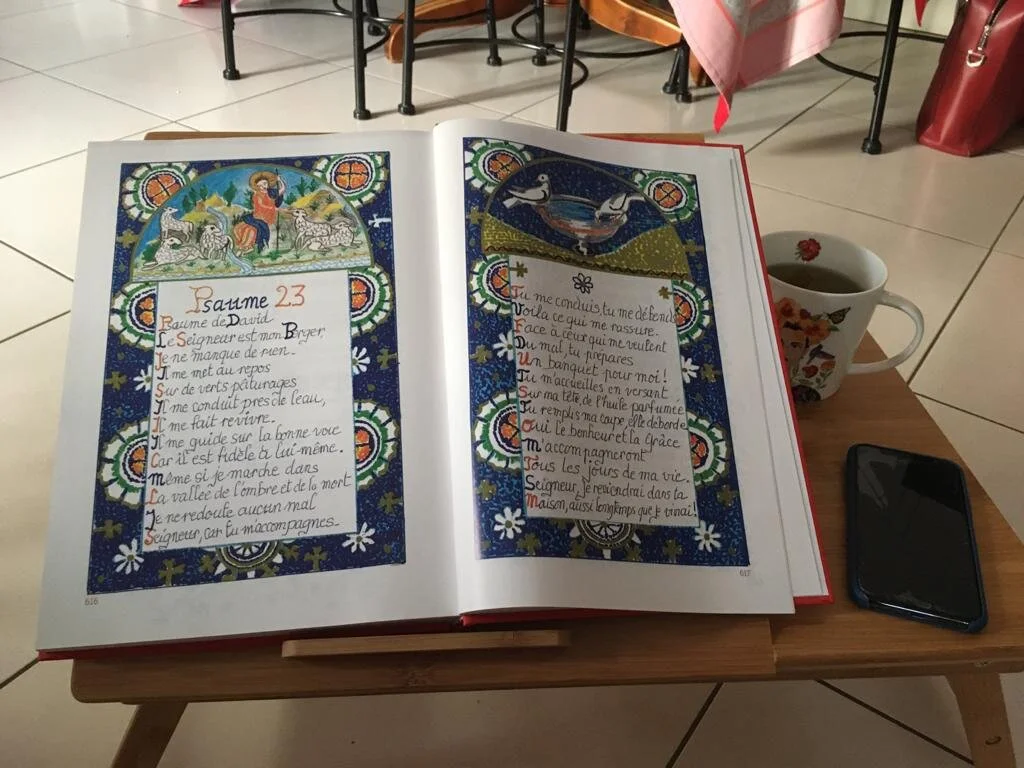 Psaume 23
Psaume de David
Le Seigneur est mon Berger,
Je ne manque de rien.
Il me met au repos
Sur de verts pâturages
Il me conduit près de l'eau,
Il me fait revivre.
Il me guide sur la bonne voie
Car il est fidèle à lui-même.
Même si je marche dans
La vallée de l'ombre et de la mort
Je ne redoute aucun mal
Seigneur, car tu m'accompagnes.
616
Tu me conduis, tu me défends
Voilà ce qui me rassure.
Face à ceux qui me veulent
Du mal, tu prépares
Un banquet pour moi!
Tu m'accueilles en versant
Sur ma tête, de l'huile parfumée
Tu remplis ma coupe, elle déborde
Oui le bonheur et la Grâce
M'accompagneront
Tous les jours de ma vie.
Seigneur, je reviendrai dans ta
Maison, aussi longtemps que je vivrai!
617